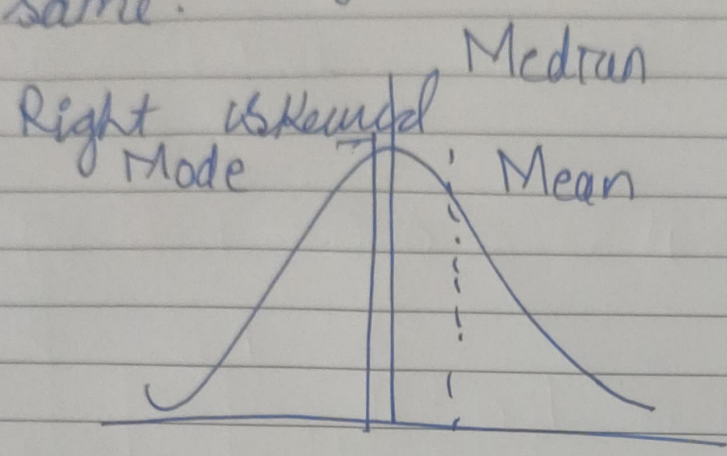 same.
Median
Right skewed
Mode
Mean